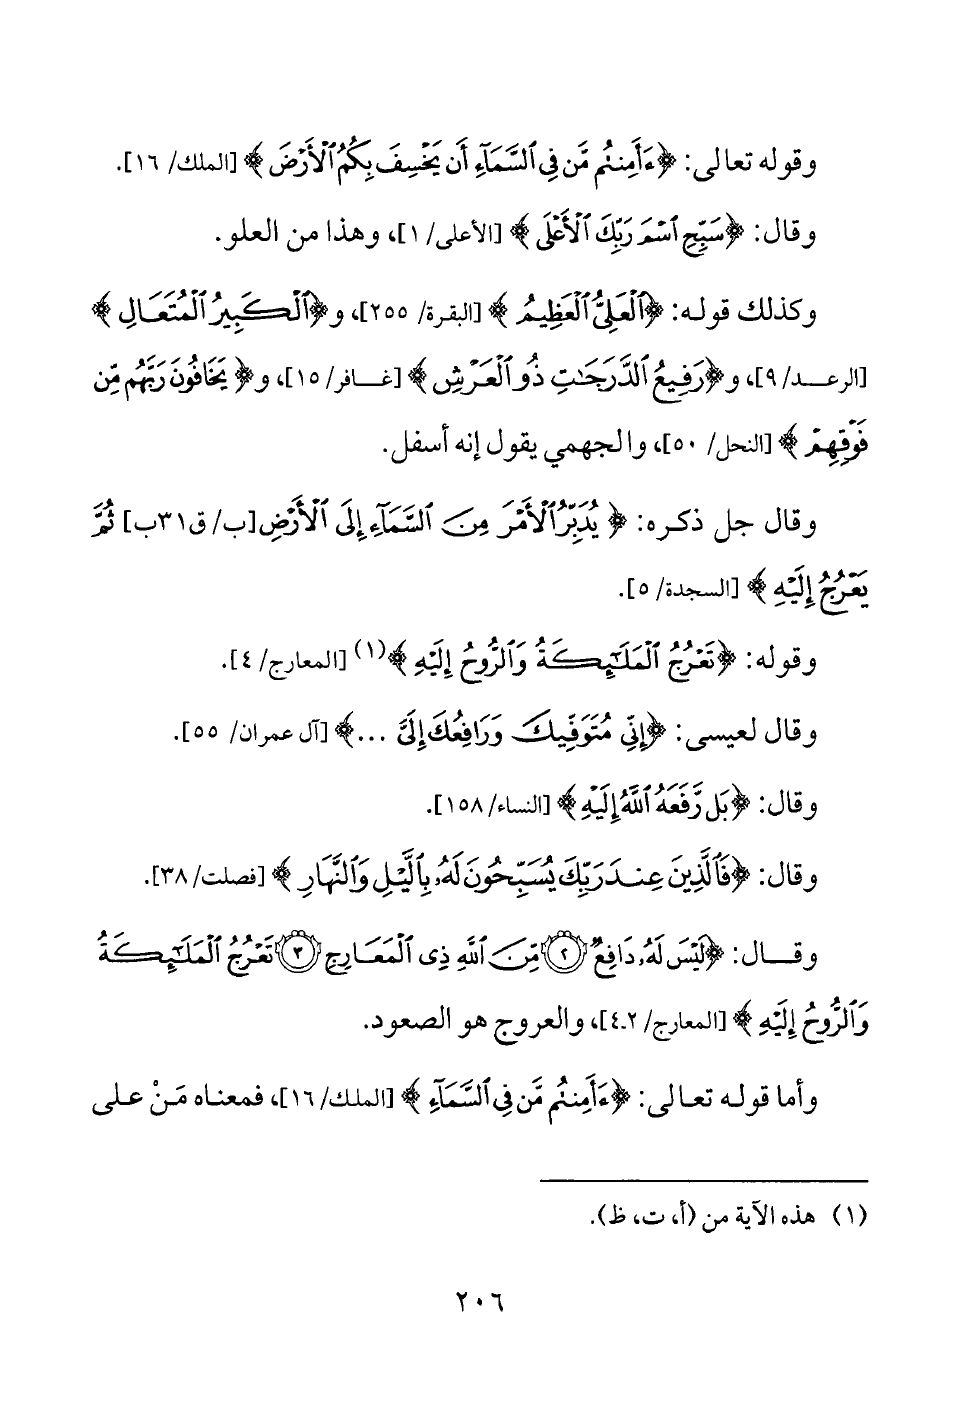 وقوله تعالى: ﴿ءَأَمِنتُم مَّن فِى ٱلسَّمَآءِ أَن يَخْسِفَ بِكُمُ ٱلْأَرْضَ﴾ [الملك/ ١٦].
وقال: ﴿سَبِّحِ ٱسْمَ رَبِّكَ ٱلْأَعْلَى﴾ [الأعلى/ ١]، وهذا من العلو.
وكذلك قوله: ﴿ٱلْعَلِىُّ ٱلْعَظِيمُ﴾ [البقرة/ ٢٥٥]، و﴿ٱلْكَبِيرُ ٱلْمُتَعَالِ﴾
[الرعد/ ٩]، و﴿رَفِيعُ ٱلدَّرَجَٰتِ ذُو ٱلْعَرْشِ﴾ [غافر/ ١٥]، و﴿يَخَافُونَ رَبَّهُم مِّن
فَوْقِهِمْ﴾ [النحل/ ٥٠]، والجهمي يقول إنه أسفل.
وقال جل ذكره: ﴿يُدَبِّرُ ٱلْأَمْرَ مِنَ ٱلسَّمَآءِ إِلَى ٱلْأَرْضِ [ب/ ق٣١ب] ثُمَّ
يَعْرُجُ إِلَيْهِ﴾ [السجدة/ ٥].
وقوله: ﴿تَعْرُجُ ٱلْمَلَٰٓئِكَةُ وَٱلرُّوحُ إِلَيْهِ﴾(١) [المعارج/ ٤].
وقال لعيسى: ﴿إِنِّى مُتَوَفِّيكَ وَرَافِعُكَ إِلَىَّ ...﴾ [آل عمران/ ٥٥].
وقال: ﴿بَل رَّفَعَهُ ٱللَّهُ إِلَيْهِ﴾ [النساء/ ١٥٨].
وقال: ﴿فَٱلَّذِينَ عِندَ رَبِّكَ يُسَبِّحُونَ لَهُۥ بِٱلَّيْلِ وَٱلنَّهَارِ﴾ [فصلت/ ٣٨].
وقال: ﴿لَيْسَ لَهُۥ دَافِعٌ ٢ مِّنَ ٱللَّهِ ذِى ٱلْمَعَارِجِ ٣ تَعْرُجُ ٱلْمَلَٰٓئِكَةُ
وَٱلرُّوحُ إِلَيْهِ﴾ [المعارج/ ٢ـ٤]، والعروج هو الصعود.
وأما قوله تعالى: ﴿ءَأَمِنتُم مَّن فِى ٱلسَّمَآءِ﴾ [الملك/ ١٦]، فمعناه مَنْ على
(١) هذه الآية من (أ، ت، ظ).
٢٠٦